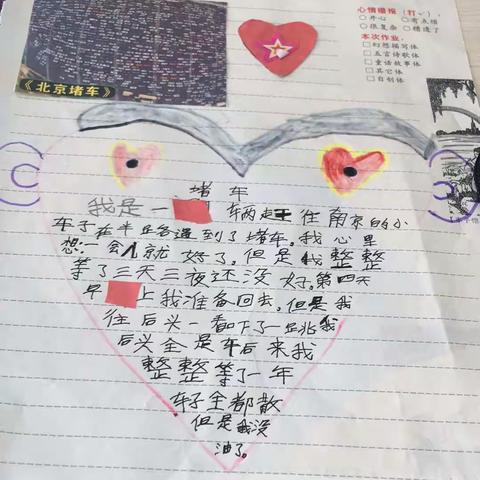 《北京堵车》
心情播报(打✓):
○开心 ○有点烦
○很复杂 ○糟透了
本次作业:
□幻想描写体
□五言诗歌体
□童话故事体
□其它体
□自创体
堵车
我是一 车两走王 往南京的小
车子在半 遇到了堵车。我心里
想:一会儿就好了。但是我整整
等了三天三夜还没好。第四天
早 上我准备回去。但是我
往后头一看吓了一跳我
后头全是车后来我
整整等了一年
车子全都散
但是我没
油了。